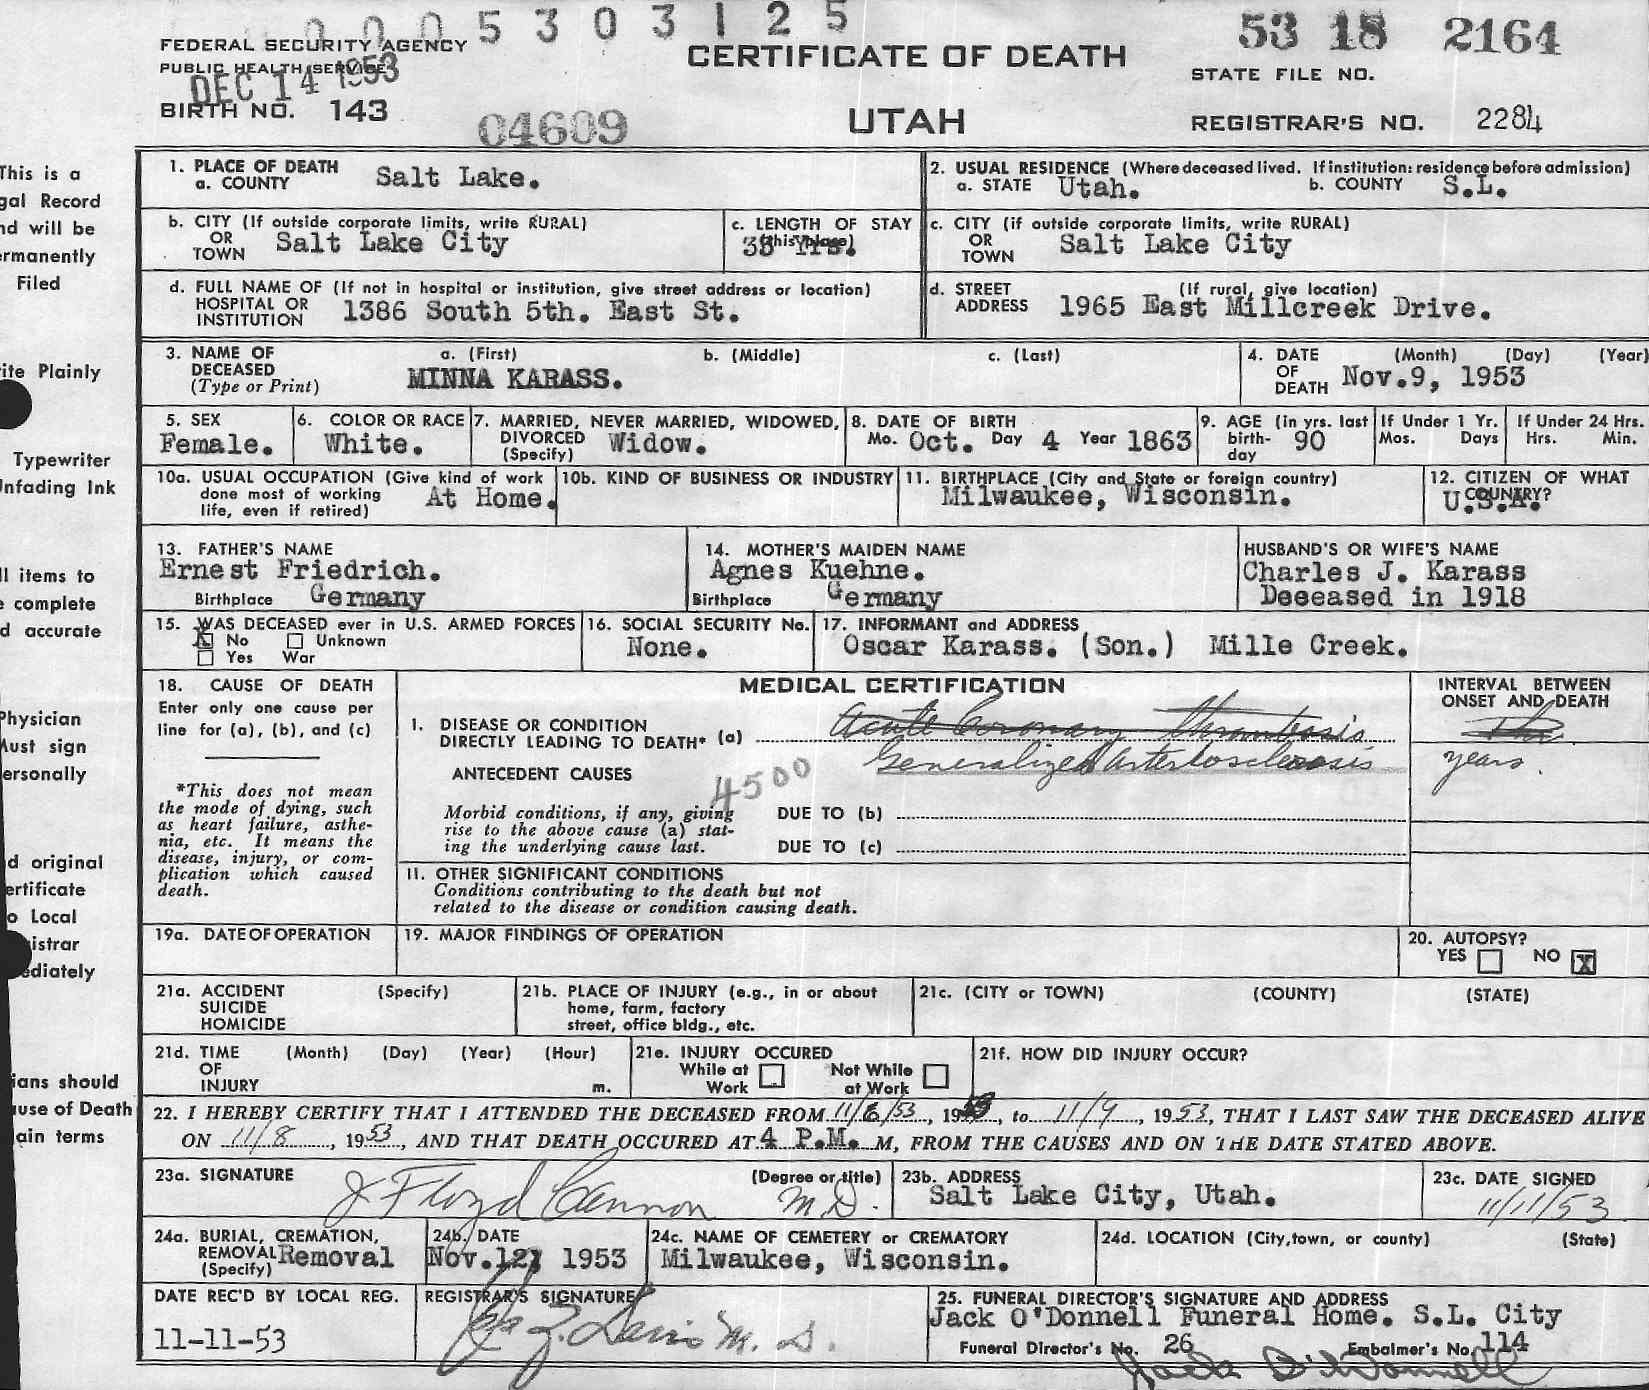 0005303125
FEDERAL SECURITY AGENCY
PUBLIC HEALTH SERVICE
DEC 14 1953
BIRTH NO. 143
04609
CERTIFICATE OF DEATH
UTAH
53 18 2164
STATE FILE NO.
REGISTRAR'S NO. 2284
This is a
gal Record
nd will be
rmanently
Filed
ite Plainly
Typewriter
nfading Ink
ll items to
e complete
d accurate
Physician
Must sign
ersonally
d original
ertificate
o Local
istrar
ediately
ians should
use of Death
ain terms
1. PLACE OF DEATH
a. COUNTY Salt Lake.
2. USUAL RESIDENCE (Where deceased lived. If institution: residence before admission)
a. STATE Utah. b. COUNTY S.L.
b. CITY (If outside corporate limits, write RURAL)
OR
TOWN Salt Lake City
c. LENGTH OF STAY
(this place)
Yrs.
c. CITY (if outside corporate limits, write RURAL)
OR
TOWN Salt Lake City
d. FULL NAME OF (If not in hospital or institution, give street address or location)
HOSPITAL OR
INSTITUTION 1386 South 5th. East St.
d. STREET (If rural, give location)
ADDRESS 1965 East Millcreek Drive.
3. NAME OF a. (First) b. (Middle) c. (Last)
DECEASED
(Type or Print) MINNA KARASS.
4. DATE (Month) (Day) (Year)
OF
DEATH Nov.9, 1953
5. SEX
Female.
6. COLOR OR RACE
White.
7. MARRIED, NEVER MARRIED, WIDOWED,
DIVORCED
(Specify) Widow.
8. DATE OF BIRTH
Mo. Oct. Day 4 Year 1863
9. AGE (in yrs. last
birth-
day 90
If Under 1 Yr.
Mos. Days
If Under 24 Hrs.
Hrs. Min.
10a. USUAL OCCUPATION (Give kind of work
done most of working
life, even if retired) At Home.
10b. KIND OF BUSINESS OR INDUSTRY
11. BIRTHPLACE (City and State or foreign country)
Milwaukee, Wisconsin.
12. CITIZEN OF WHAT
COUNTRY?
U.S.A.
13. FATHER'S NAME
Ernest Friedrich.
Birthplace Germany
14. MOTHER'S MAIDEN NAME
Agnes Kuehne.
Birthplace Germany
HUSBAND'S OR WIFE'S NAME
Charles J. Karass
Deseased in 1918
15. WAS DECEASED ever in U.S. ARMED FORCES
X No Unknown
Yes War
16. SOCIAL SECURITY No.
None.
17. INFORMANT and ADDRESS
Oscar Karass. (Son.) Mille Creek.
18. CAUSE OF DEATH
Enter only one cause per
line for (a), (b), and (c)
*This does not mean
the mode of dying, such
as heart failure, asthe-
nia, etc. It means the
disease, injury, or com-
plication which caused
death.
MEDICAL CERTIFICATION
INTERVAL BETWEEN
ONSET AND DEATH
I. DISEASE OR CONDITION
DIRECTLY LEADING TO DEATH* (a) Acute Coronary Thrombosis
Generalized Arteriosclerosis years.
ANTECEDENT CAUSES
4500
Morbid conditions, if any, giving
rise to the above cause (a) stat-
ing the underlying cause last.
DUE TO (b)
DUE TO (c)
II. OTHER SIGNIFICANT CONDITIONS
Conditions contributing to the death but not
related to the disease or condition causing death.
19a. DATE OF OPERATION
19. MAJOR FINDINGS OF OPERATION
20. AUTOPSY?
YES NO X
21a. ACCIDENT (Specify)
SUICIDE
HOMICIDE
21b. PLACE OF INJURY (e.g., in or about
home, farm, factory
street, office bldg., etc.
21c. (CITY or TOWN) (COUNTY) (STATE)
21d. TIME (Month) (Day) (Year) (Hour)
OF
INJURY m.
21e. INJURY OCCURED
While at Work Not While at Work
21f. HOW DID INJURY OCCUR?
22. I HEREBY CERTIFY THAT I ATTENDED THE DECEASED FROM 11/6/53, 1953, to 11/9, 1953, THAT I LAST SAW THE DECEASED ALIVE
ON 11/8, 1953, AND THAT DEATH OCCURED AT 4 P.M. M, FROM THE CAUSES AND ON THE DATE STATED ABOVE.
23a. SIGNATURE (Degree or title)
J Floyd Cannon M.D.
23b. ADDRESS
Salt Lake City, Utah.
23c. DATE SIGNED
11/11/53
24a. BURIAL, CREMATION,
REMOVAL Removal
(Specify)
24b. DATE
Nov.12, 1953
24c. NAME OF CEMETERY or CREMATORY
Milwaukee, Wisconsin.
24d. LOCATION (City, town, or county) (State)
DATE REC'D BY LOCAL REG.
11-11-53
REGISTRAR'S SIGNATURE
M. D.
25. FUNERAL DIRECTOR'S SIGNATURE AND ADDRESS
Jack O'Donnell Funeral Home. S.L. City
Funeral Director's No. 26 Embalmer's No. 114
Jack O'Donnell